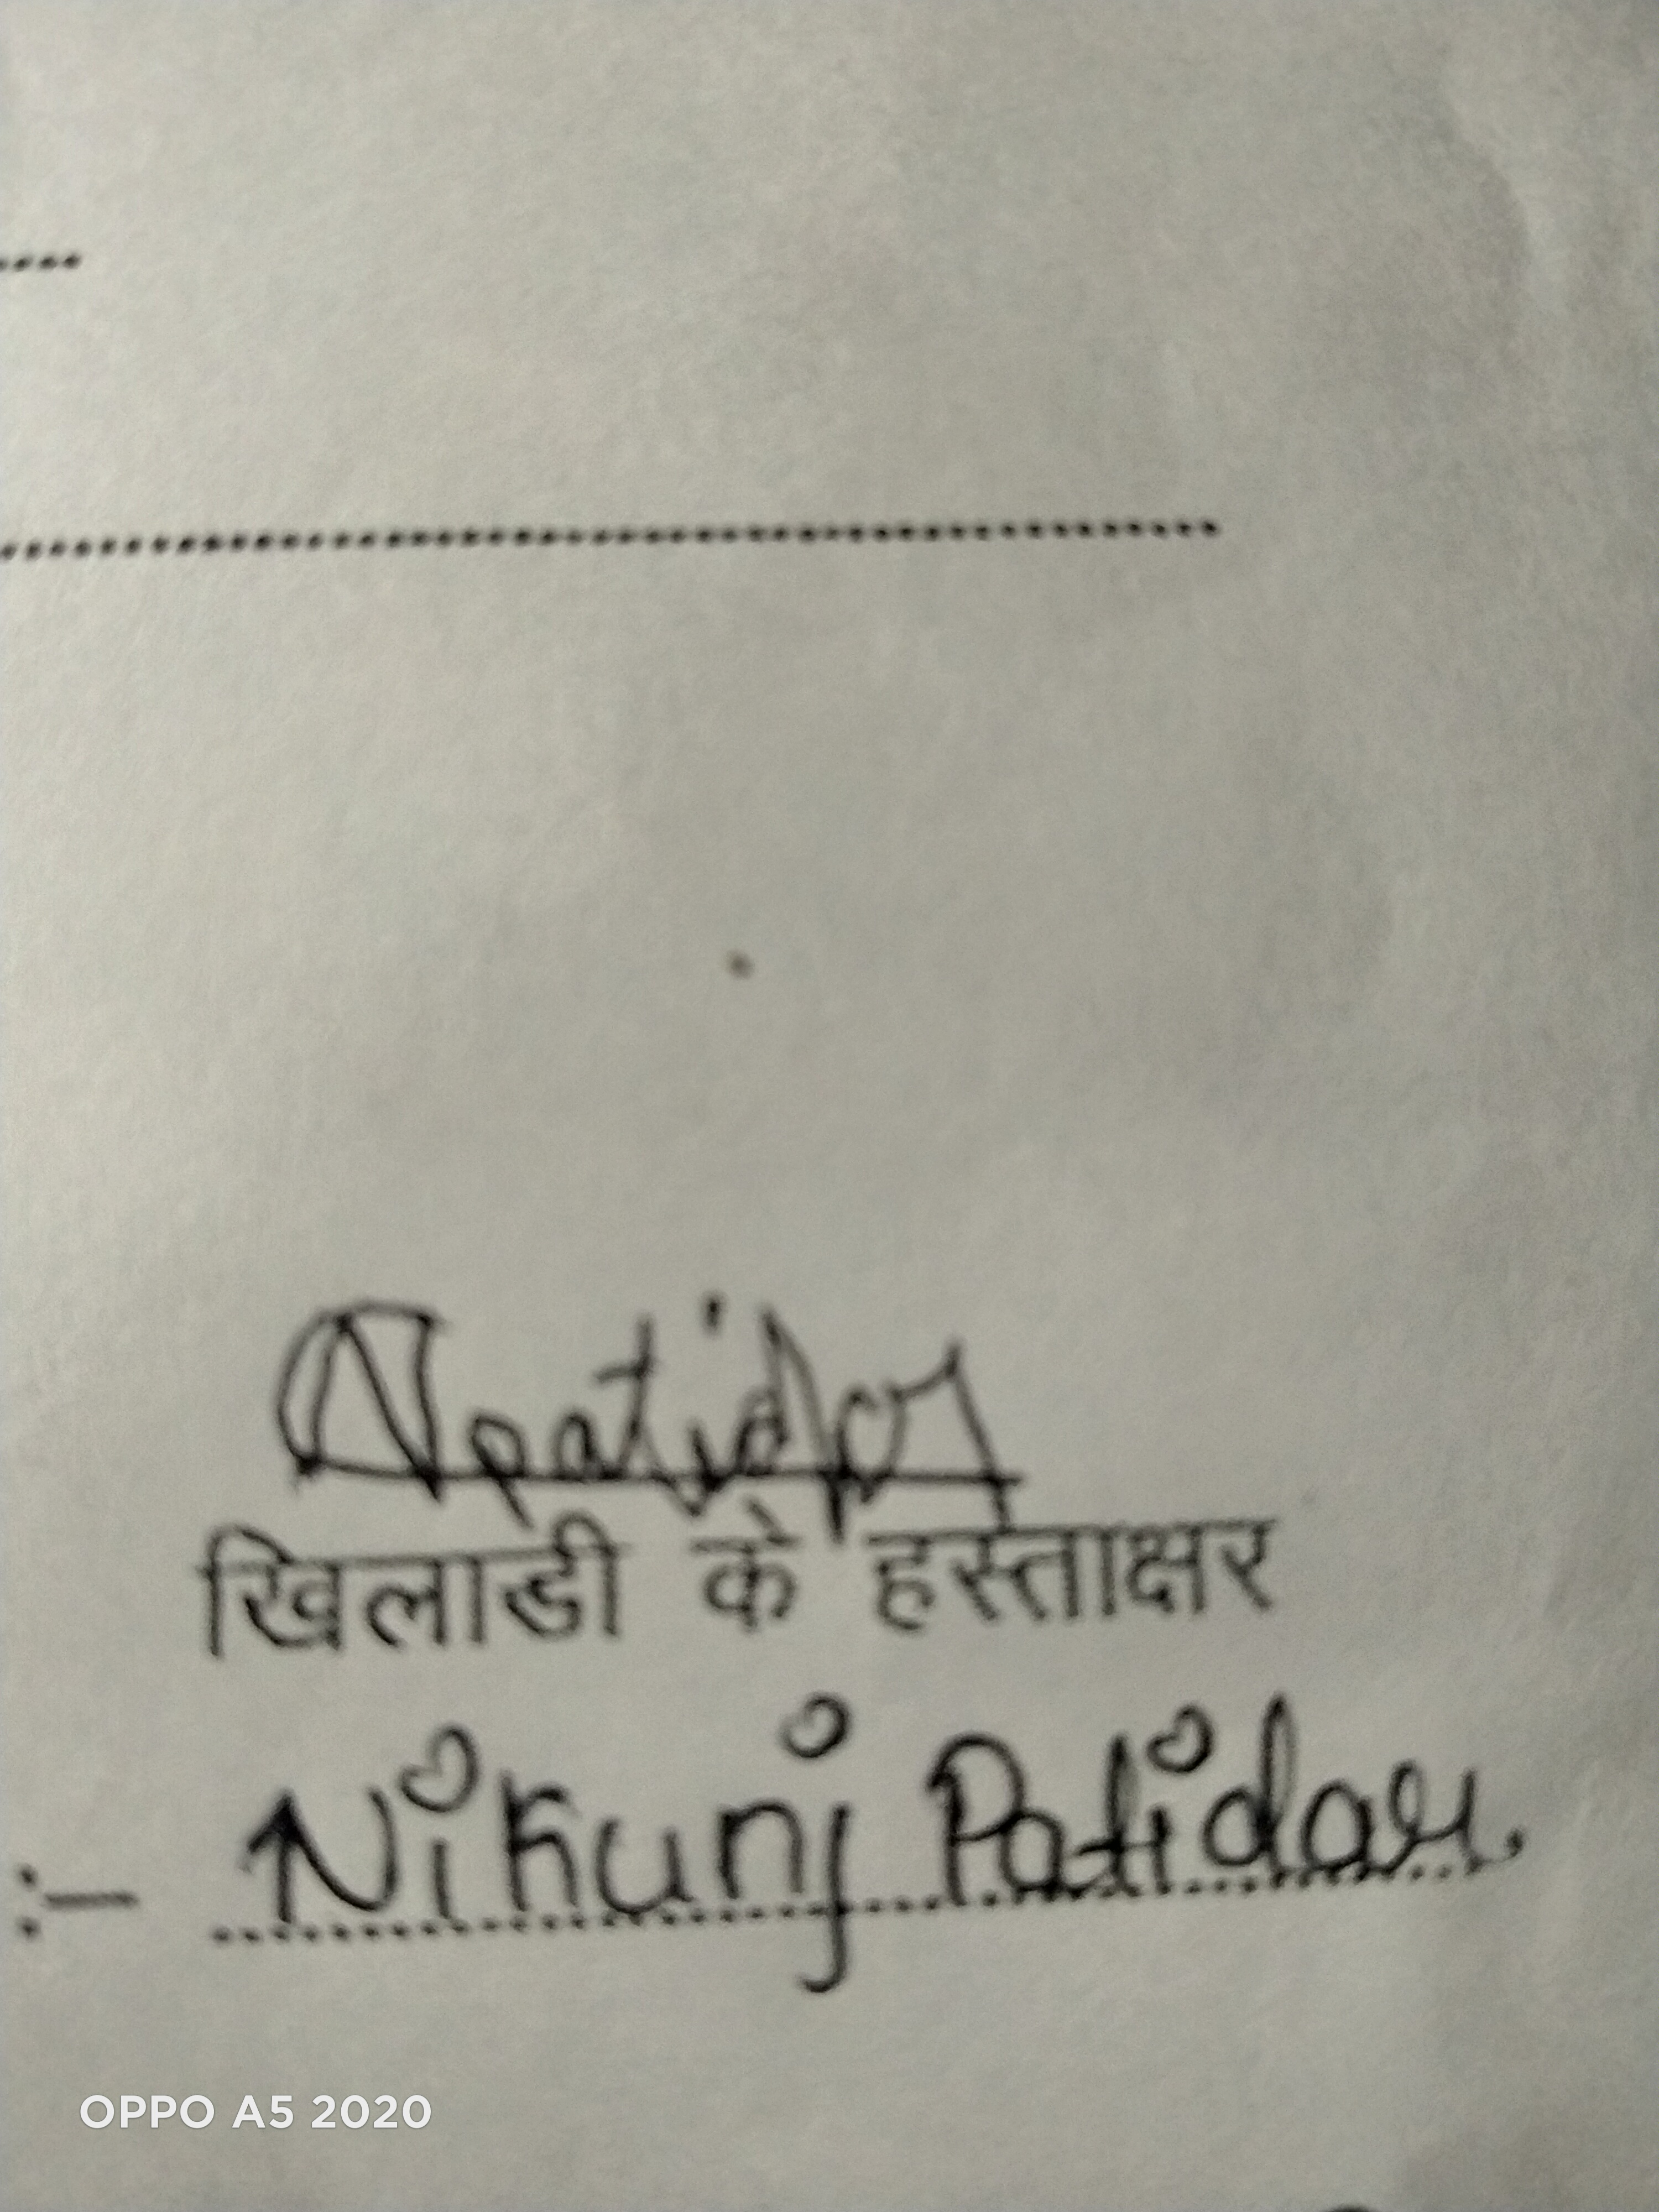 Npatidar
खिलाडी के हस्ताक्षर
:— Nikunj Patidar.
OPPO A5 2020